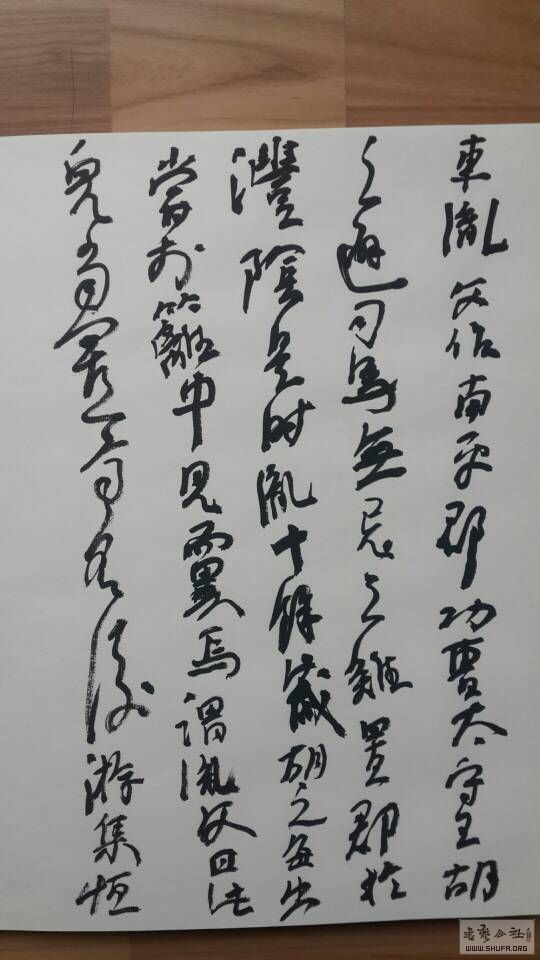 車胤父作南平郡功曹太守王胡
之避司馬無忌之難置郡於
澧陰是时胤十餘歲胡之每出
嘗於籬中見而異焉謂胤父曰此
兒當致高名後游集恒
书艺公社
WWW.SHUFA.ORG